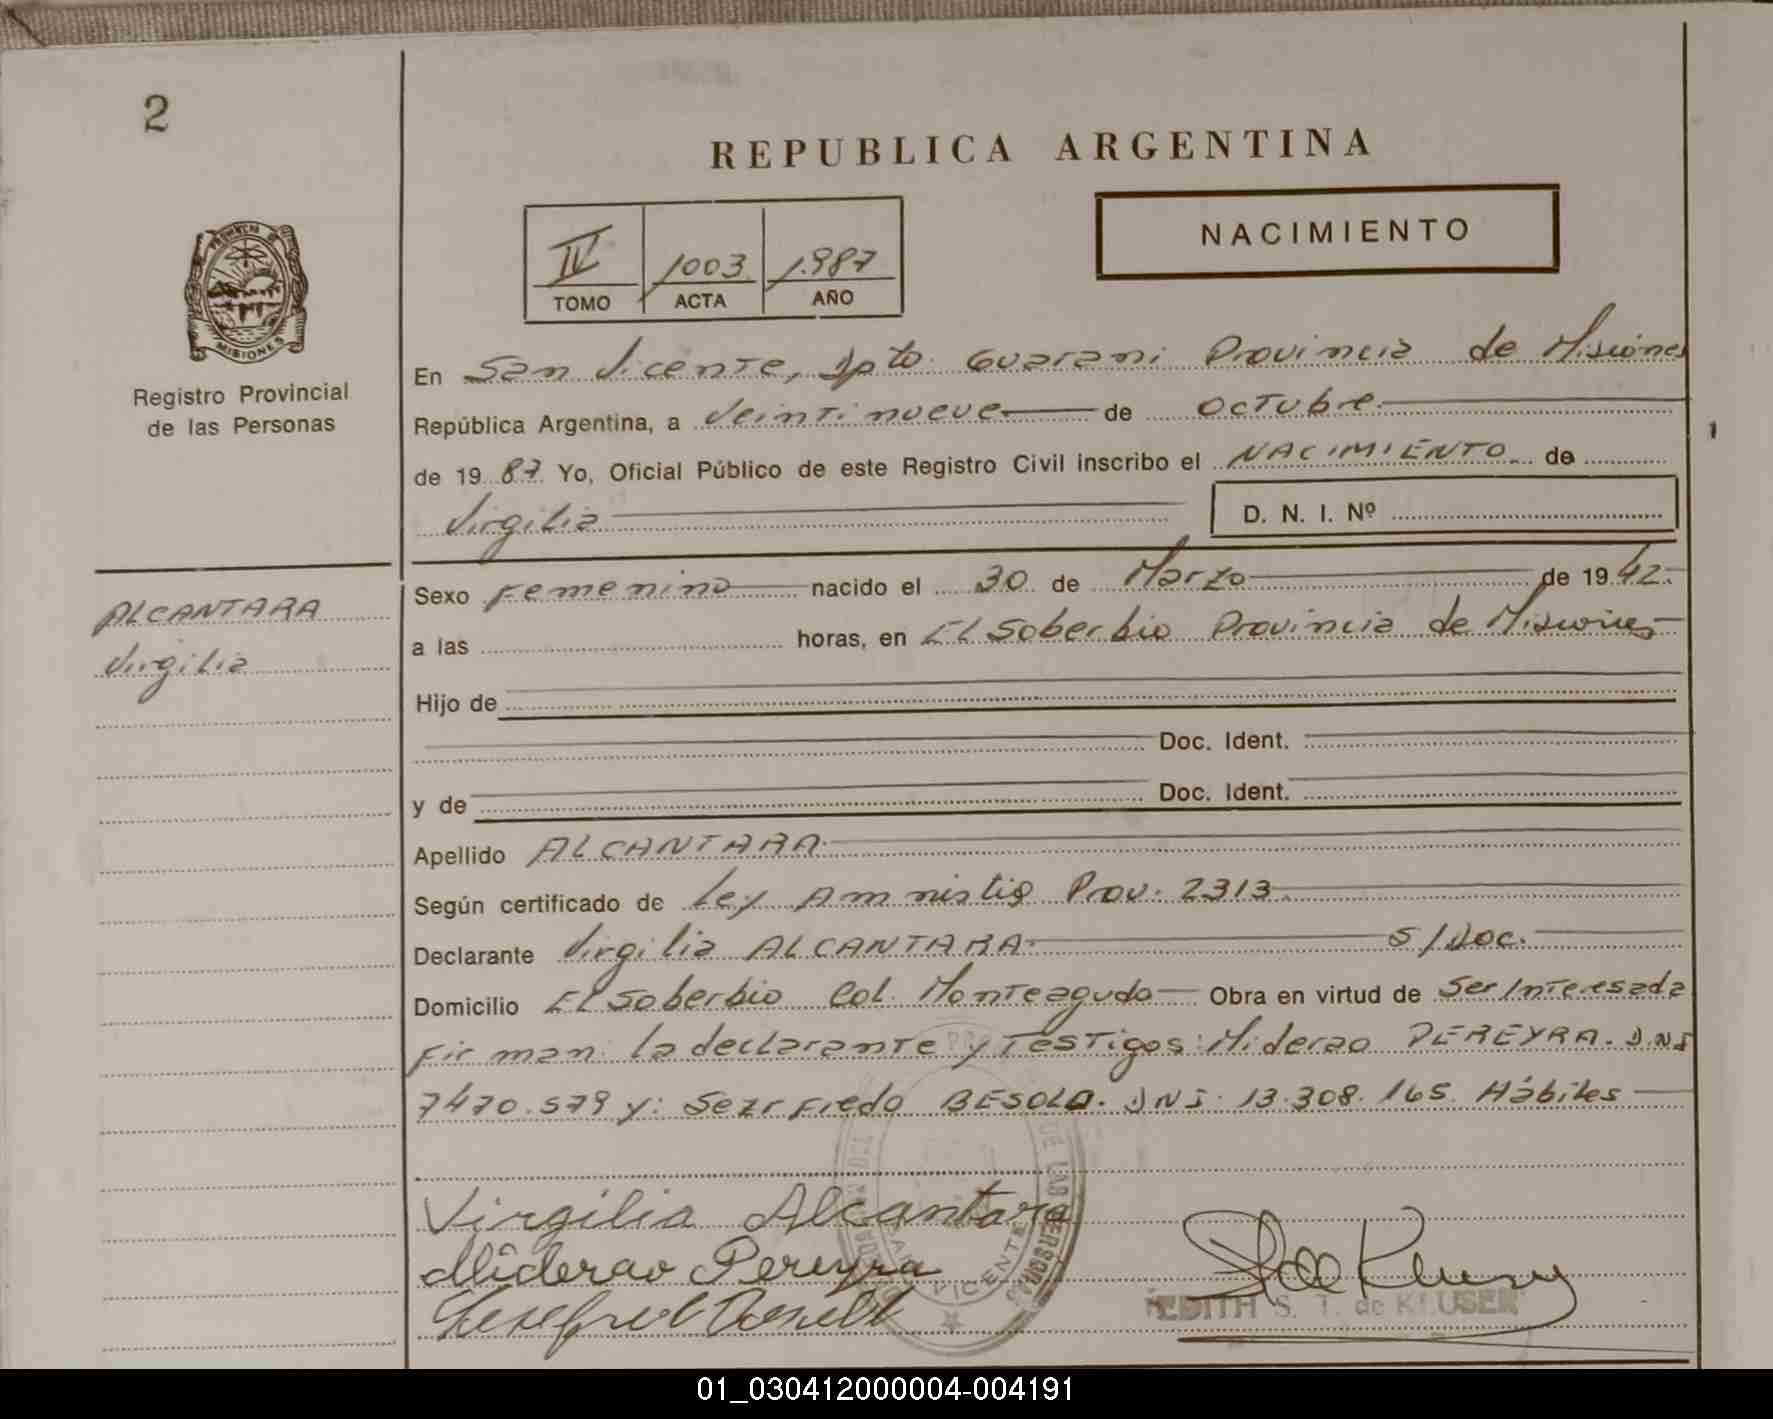 2
REPUBLICA ARGENTINA
NACIMIENTO
IV 1003 1.987
TOMO ACTA AÑO
PROVINCIA DE
MISIONES
Registro Provincial
de las Personas
En San Vicente, Dpto. Guarani Provincia de Misiones
República Argentina, a Veintinueve de Octubre
de 19 87 Yo, Oficial Público de este Registro Civil inscribo el NACIMIENTO de
Virgilia D. N. I. Nº
ALCANTARA
Virgilia
Sexo Femenino nacido el 30 de Marzo de 19 42.
a las horas, en El Soberbio Provincia de Misiones
Hijo de
Doc. Ident.
y de Doc. Ident.
Apellido ALCANTARA
Según certificado de Ley Amnistia Prov. 2313
Declarante Virgilia ALCANTARA S/Doc.
Domicilio El Soberbio Col. Monteagudo Obra en virtud de Ser Interesada
Firman: la declarante y Testigos: Miderao PEREYRA. D.N.I
7470.579 y: BESOLD. DNI. 13.308.165. Hábiles
Virgilia Alcantara
Miderao Pereyra
DE LAS PERSONAS
VICENTE
EDITH S. T. de KLUSER
01_030412000004-004191